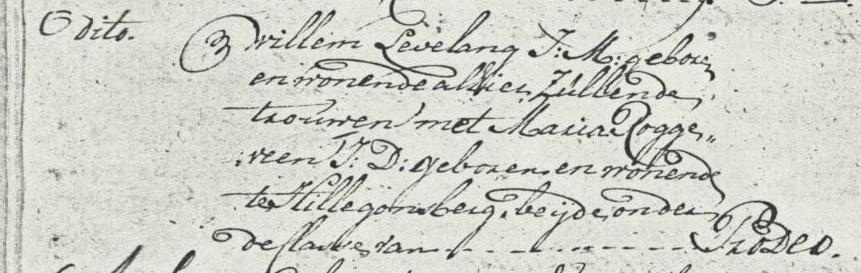 6 dito.
3 willem Levelang J: M: gebore
en wonende alhier, Zullende
trouwen met Maria Rogge„
veen J: D: geboren en wonende
te Hillegonsberg, beijde onder
de classe van - - - - - - - Pro Deo.